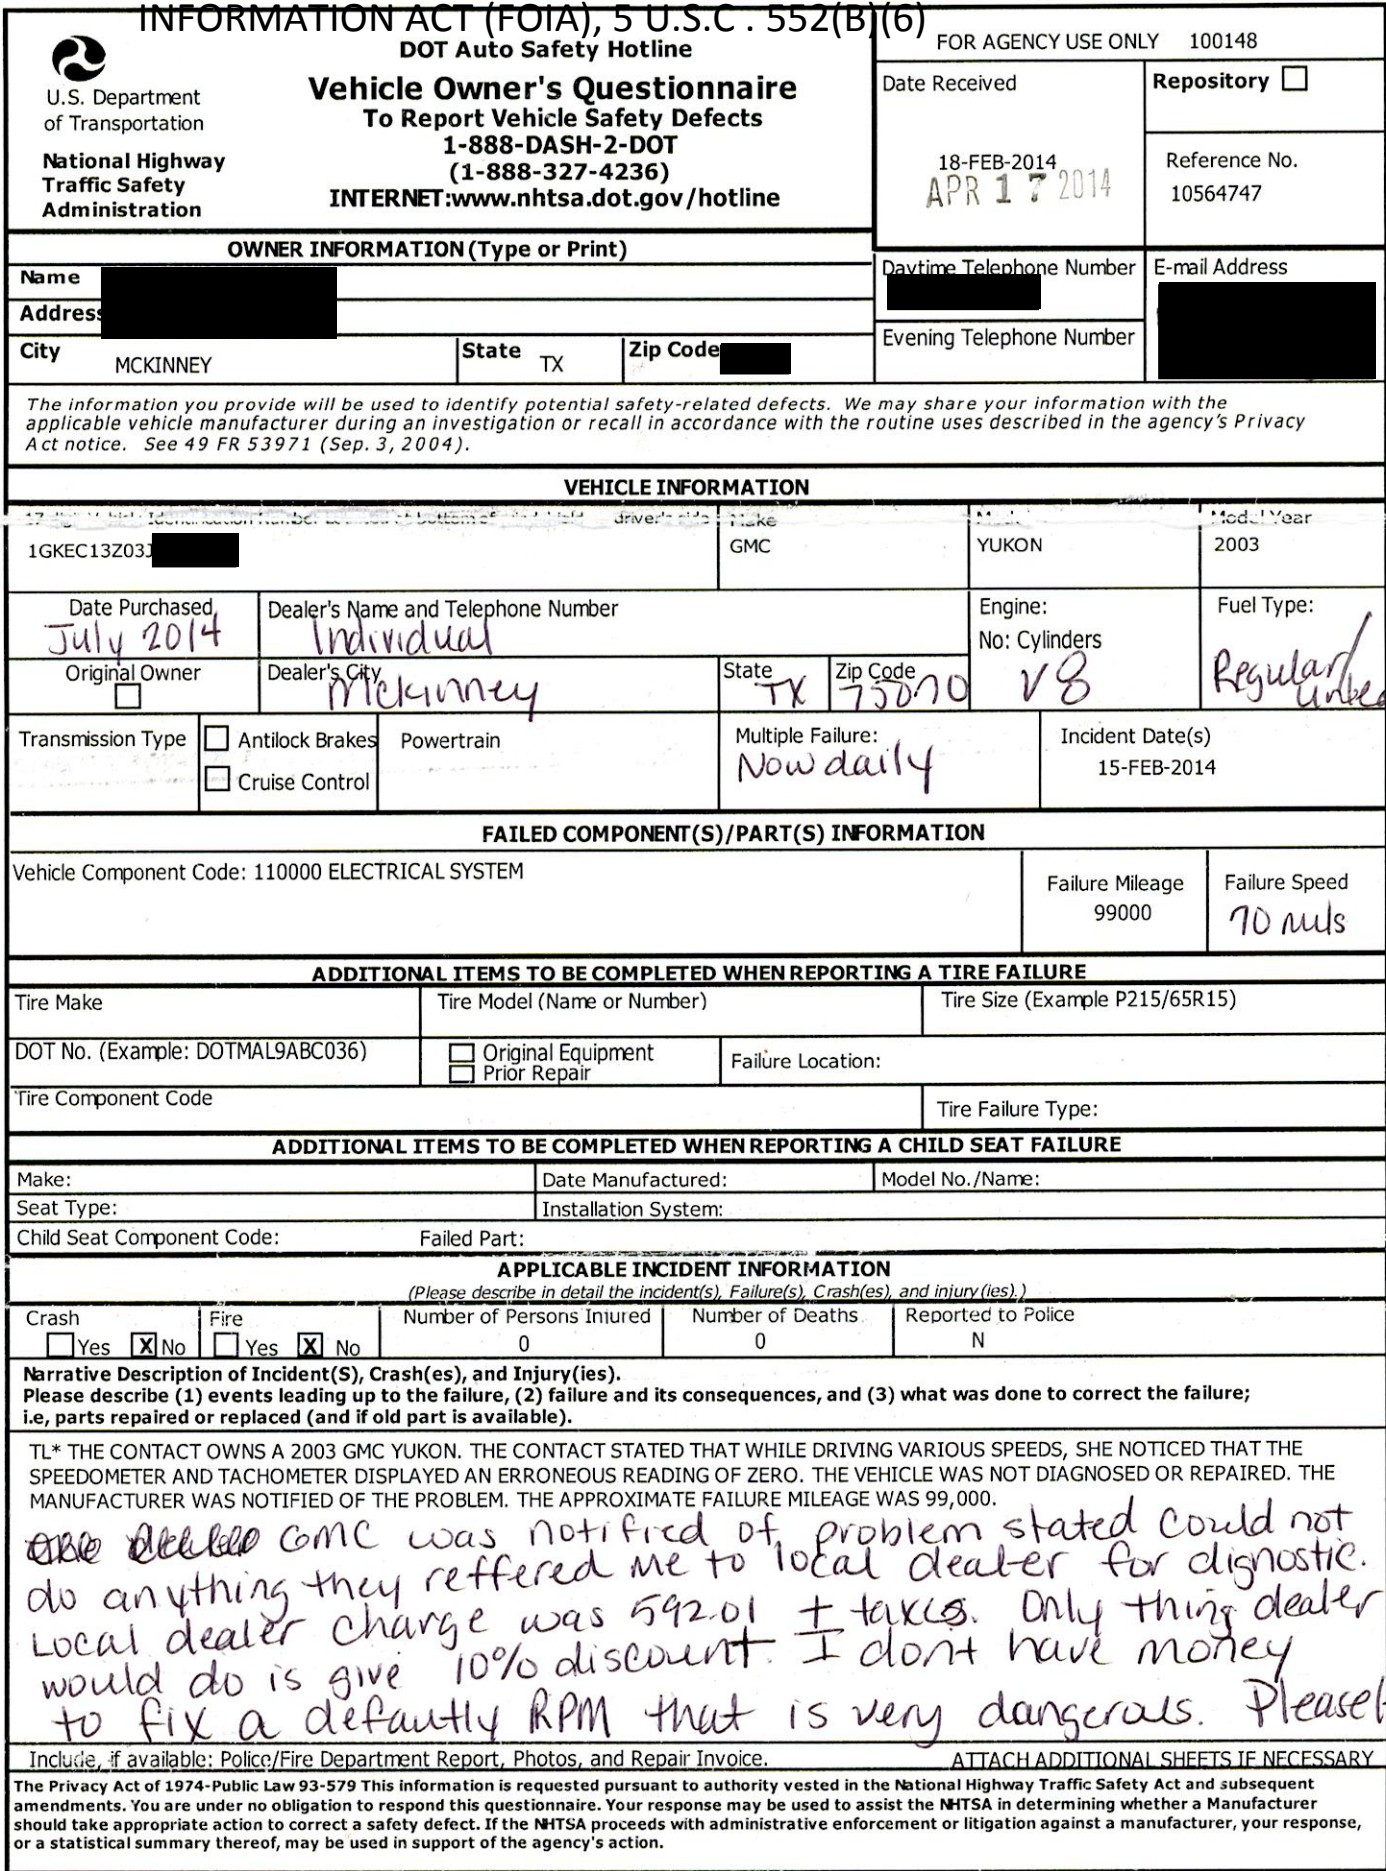 INFORMATION ACT (FOIA), 5 U.S.C . 552(B)(6)
U.S. Department
of Transportation
National Highway
Traffic Safety
Administration
DOT Auto Safety Hotline
Vehicle Owner's Questionnaire
To Report Vehicle Safety Defects
1-888-DASH-2-DOT
(1-888-327-4236)
INTERNET:www.nhtsa.dot.gov/hotline
FOR AGENCY USE ONLY 100148
Date Received
18-FEB-2014
APR 17 2014
Repository
Reference No.
10564747
OWNER INFORMATION (Type or Print)
Name
Address
City MCKINNEY State TX Zip Code
Daytime Telephone Number
E-mail Address
Evening Telephone Number
The information you provide will be used to identify potential safety-related defects. We may share your information with the
applicable vehicle manufacturer during an investigation or recall in accordance with the routine uses described in the agency's Privacy
Act notice. See 49 FR 53971 (Sep. 3, 2004).
VEHICLE INFORMATION
Identification Number driver's side Make Model Year
1GKEC13Z03J GMC YUKON 2003
Date Purchased
July 2014
Dealer's Name and Telephone Number
Individual
Engine:
No: Cylinders
V8
Fuel Type:
Regular/
Original Owner
Dealer's City
Mckinney
State
TX
Zip Code
75070
Transmission Type
Antilock Brakes
Cruise Control
Powertrain
Multiple Failure:
Now daily
Incident Date(s)
15-FEB-2014
FAILED COMPONENT(S)/PART(S) INFORMATION
Vehicle Component Code: 110000 ELECTRICAL SYSTEM
Failure Mileage
99000
Failure Speed
70
ADDITIONAL ITEMS TO BE COMPLETED WHEN REPORTING A TIRE FAILURE
Tire Make Tire Model (Name or Number) Tire Size (Example P215/65R15)
DOT No. (Example: DOTMAL9ABC036)
Original Equipment
Prior Repair
Failure Location:
Tire Component Code Tire Failure Type:
ADDITIONAL ITEMS TO BE COMPLETED WHEN REPORTING A CHILD SEAT FAILURE
Make: Date Manufactured: Model No./Name:
Seat Type: Installation System:
Child Seat Component Code: Failed Part:
APPLICABLE INCIDENT INFORMATION
(Please describe in detail the incident(s), Failure(s), Crash(es), and injury(ies).)
Crash Fire Number of Persons Injured Number of Deaths Reported to Police
Yes X No Yes X No 0 0 N
Narrative Description of Incident(S), Crash(es), and Injury(ies).
Please describe (1) events leading up to the failure, (2) failure and its consequences, and (3) what was done to correct the failure;
i.e, parts repaired or replaced (and if old part is available).
TL* THE CONTACT OWNS A 2003 GMC YUKON. THE CONTACT STATED THAT WHILE DRIVING VARIOUS SPEEDS, SHE NOTICED THAT THE
SPEEDOMETER AND TACHOMETER DISPLAYED AN ERRONEOUS READING OF ZERO. THE VEHICLE WAS NOT DIAGNOSED OR REPAIRED. THE
MANUFACTURER WAS NOTIFIED OF THE PROBLEM. THE APPROXIMATE FAILURE MILEAGE WAS 99,000.
GMC was notified of problem stated could not
do anything they reffered me to local dealer for dignostic.
Local dealer charge was 592.01 + taxes. Only thing dealer
would do is give 10% discount. I dont have money
to fix a defautly RPM that is very dangerous. Please!
Include, if available: Police/Fire Department Report, Photos, and Repair Invoice. ATTACH ADDITIONAL SHEETS IF NECESSARY
The Privacy Act of 1974-Public Law 93-579 This information is requested pursuant to authority vested in the National Highway Traffic Safety Act and subsequent
amendments. You are under no obligation to respond this questionnaire. Your response may be used to assist the NHTSA in determining whether a Manufacturer
should take appropriate action to correct a safety defect. If the NHTSA proceeds with administrative enforcement or litigation against a manufacturer, your response,
or a statistical summary thereof, may be used in support of the agency's action.